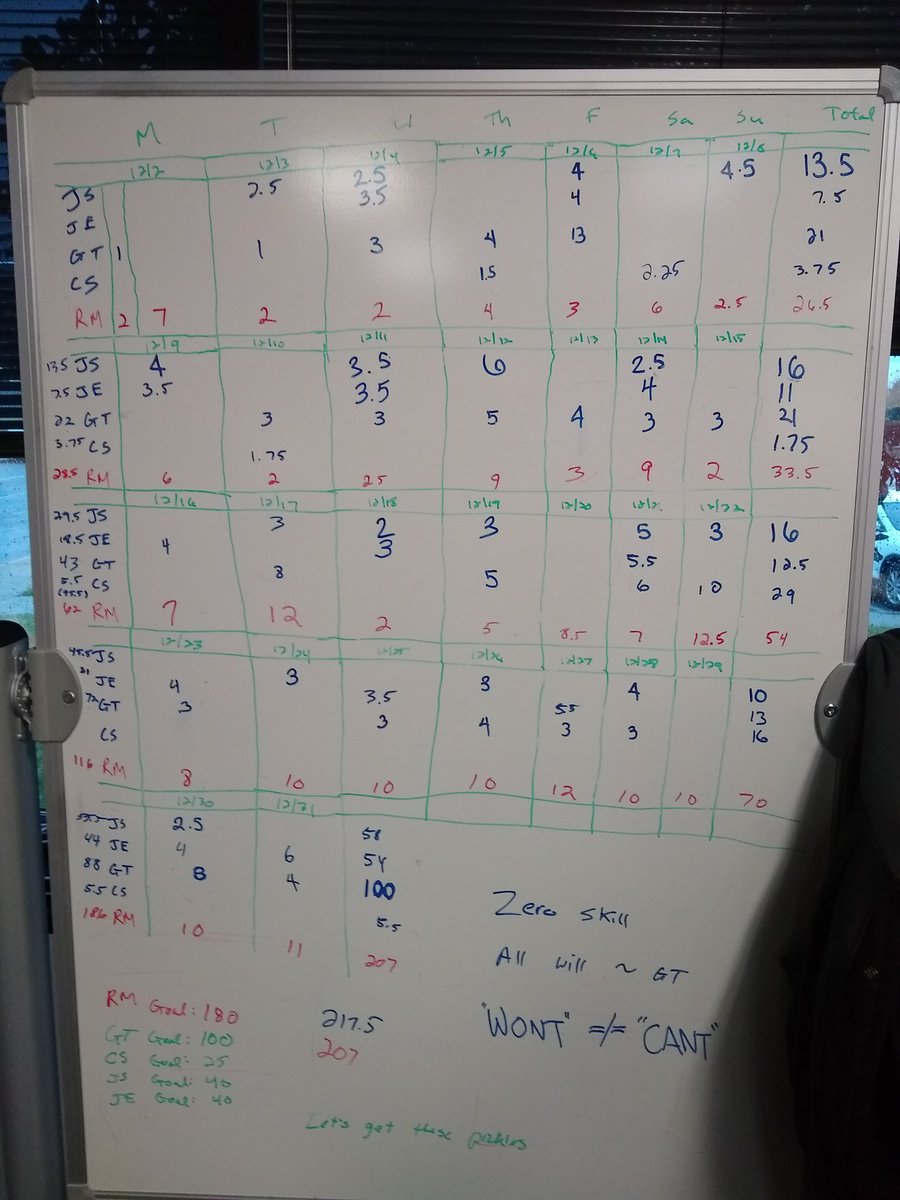 M T W Th F Sa Su Total
12/2 12/3 12/4 12/5 12/6 12/7 12/8
JS 2.5 2.5 4 4.5 13.5
JE 3.5 4 7.5
GT 1 1 3 4 13 21
CS 1.5 2.25 3.75
RM 2 7 2 2 4 3 6 2.5 26.5
12/9 12/10 12/11 12/12 12/13 12/14 12/15
13.5 JS 4 3.5 6 2.5 16
7.5 JE 3.5 3.5 4 11
22 GT 3 3 5 4 3 3 21
3.75 CS 1.75 1.75
28.5 RM 6 2 2.5 9 3 9 2 33.5
12/16 12/17 12/18 12/19 12/20 12/21 12/22
29.5 JS 3 2 3 5 3 16
18.5 JE 4 3 5.5 12.5
43 GT 8 5 6 10 29
5.5 CS
(95.5)
62 RM 7 12 2 5 8.5 7 12.5 54
12/23 12/24 12/25 12/26 12/27 12/28 12/29
45.5 JS 3 3 4 10
31 JE 4 3.5 5.5 13
72 GT 3 3 4 3 3 16
CS
116 RM 8 10 10 10 12 10 10 70
12/30 12/31
55.5 JS 2.5 58
44 JE 4 6 54
88 GT 8 4 100
5.5 CS 5.5
186 RM 10 11 207
Zero skill
All will ~ GT
"WONT" =/= "CANT"
RM Goal: 180
GT Goal: 100
CS Goal: 25
JS Goal: 40
JE Goal: 40
217.5
207
Let's get these pickles